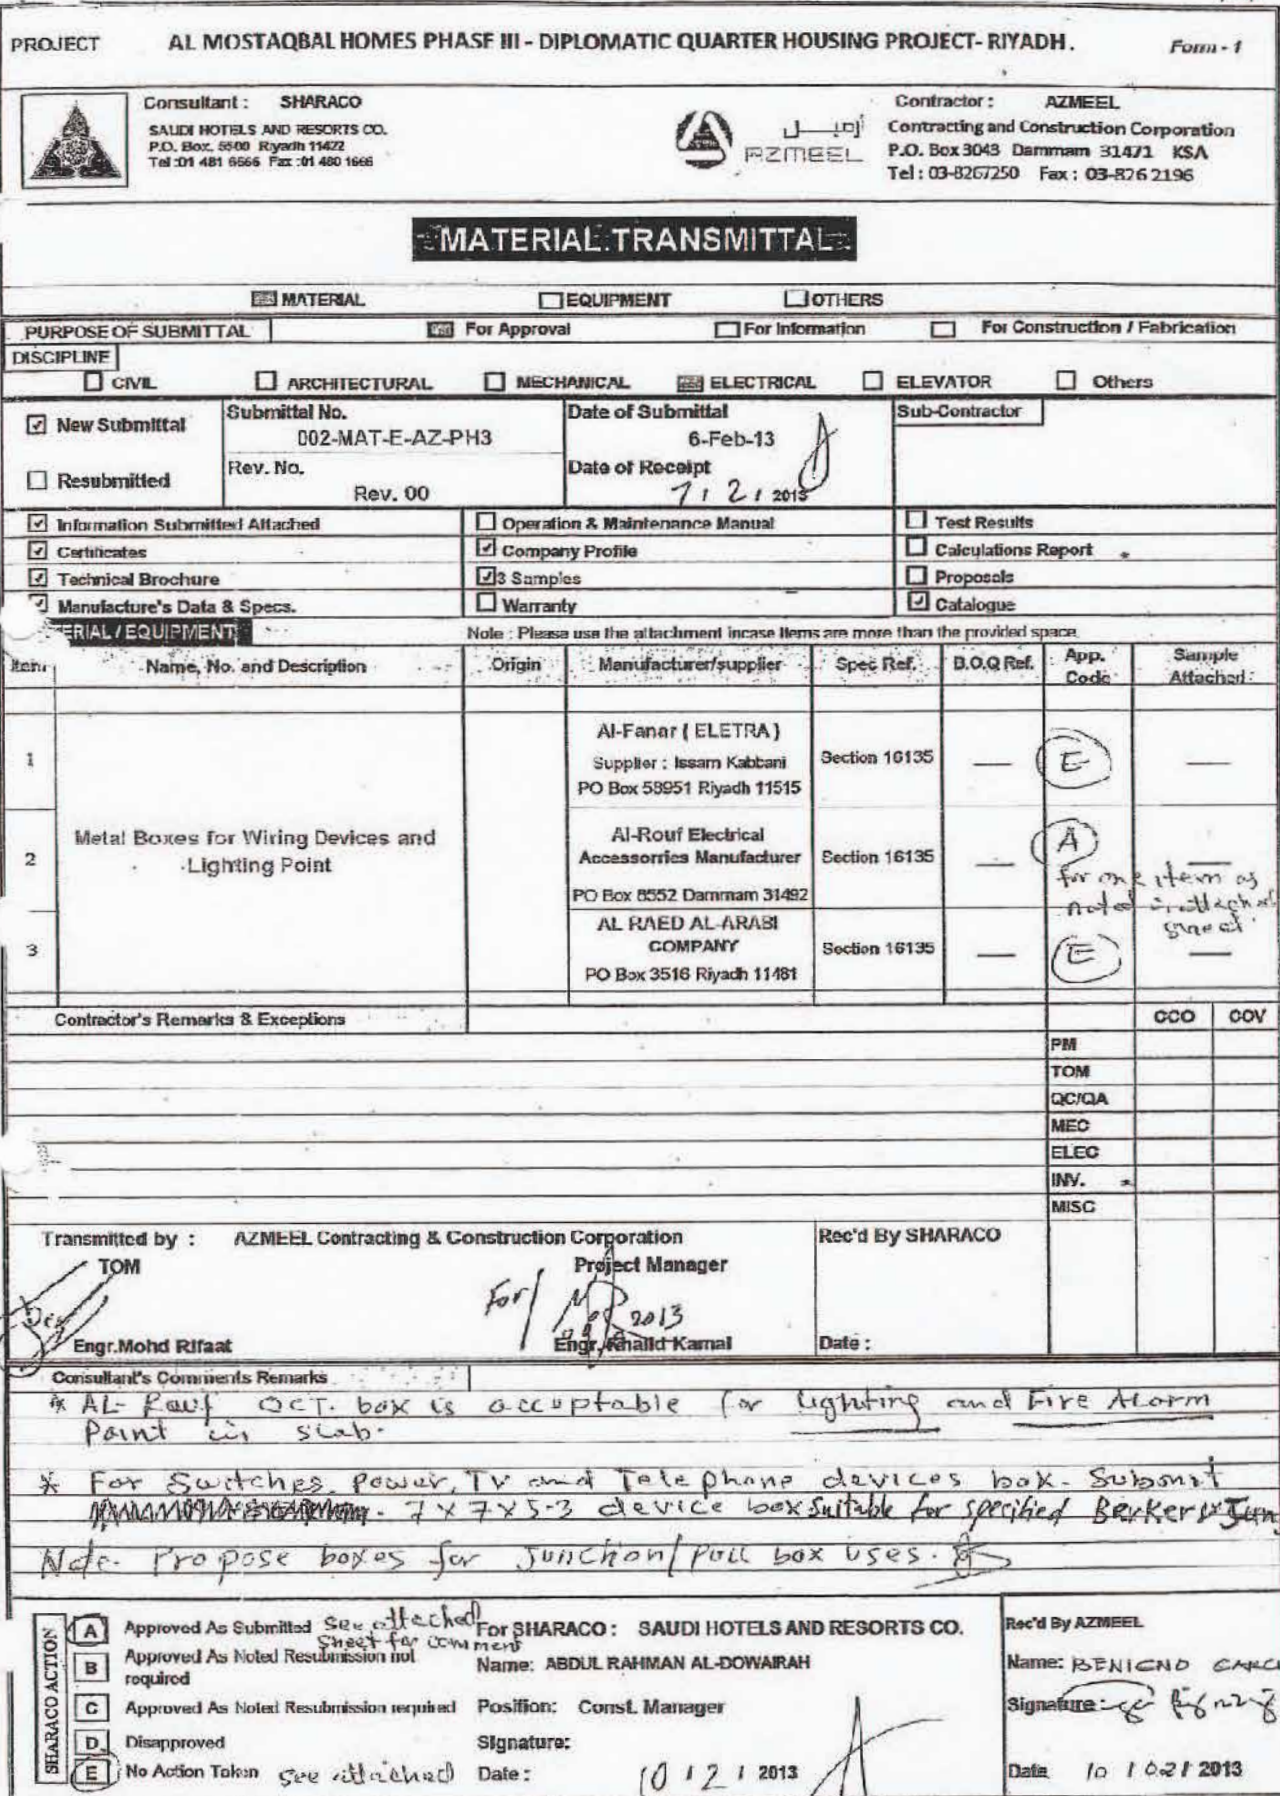 PROJECT AL MOSTAQBAL HOMES PHASE III - DIPLOMATIC QUARTER HOUSING PROJECT- RIYADH. Form - 1
Consultant : SHARACO
SAUDI HOTELS AND RESORTS CO.
P.O. Box, 5500 Riyadh 11422
Tel :01 481 6666 Fax :01 480 1666
أزميل
AZMEEL
Contractor : AZMEEL
Contracting and Construction Corporation
P.O. Box 3043 Dammam 31471 KSA
Tel : 03-8267250 Fax : 03-826 2196
MATERIAL TRANSMITTAL
MATERIAL EQUIPMENT OTHERS
PURPOSE OF SUBMITTAL For Approval For Information For Construction / Fabrication
DISCIPLINE
CIVIL ARCHITECTURAL MECHANICAL ELECTRICAL ELEVATOR Others
New Submittal Submittal No. Date of Submittal Sub-Contractor
002-MAT-E-AZ-PH3 6-Feb-13
Resubmitted Rev. No. Date of Receipt
Rev. 00 7 / 2 / 2013
Information Submitted Attached Operation & Maintenance Manual Test Results
Certificates Company Profile Calculations Report
Technical Brochure 3 Samples Proposals
Manufacture's Data & Specs. Warranty Catalogue
ERIAL / EQUIPMENT Note : Please use the attachment incase Items are more than the provided space
Item Name, No. and Description Origin Manufacturer/supplier Spec Ref. B.O.Q Ref. App. Code Sample Attached :
1 Al-Fanar ( ELETRA )
Supplier : Issam Kabbani
PO Box 58951 Riyadh 11515
Section 16135 — E —
Metal Boxes for Wiring Devices and
Lighting Point
2 Al-Rouf Electrical
Accessorries Manufacturer
PO Box 8552 Dammam 31492
Section 16135 — A —
for one item as
noted in attached
sheet
3 AL RAED AL-ARABI
COMPANY
PO Box 3516 Riyadh 11481
Section 16135 — E —
Contractor's Remarks & Exceptions CCO COV
PM
TOM
QC/QA
MEC
ELEC
INV.
MISC
Transmitted by : AZMEEL Contracting & Construction Corporation Rec'd By SHARACO
TOM Project Manager
For/ 2013
Engr.Mohd Rifaat Engr. Khalid Kamal Date :
Consultant's Comments Remarks
* AL- Rauf OCT. box is acceptable for lighting and Fire Alarm
Point in slab.
* For Switches, Power, TV and Telephone devices box - Submit
7 x 7 x 5-3 device box suitable for specified Berker &
Note- Propose boxes for Junction/Pull box uses.
SHARACO ACTION
A Approved As Submitted see attached
Sheet for comment
B Approved As Noted Resubmission not
required
C Approved As Noted Resubmission required
D Disapproved
E No Action Taken see attached
For SHARACO : SAUDI HOTELS AND RESORTS CO.
Name: ABDUL RAHMAN AL-DOWAIRAH
Position: Const. Manager
Signature:
Date : 10 / 2 / 2013
Rec'd By AZMEEL
Name: BENIGNO
Signature :
Date 10 / 02 / 2013